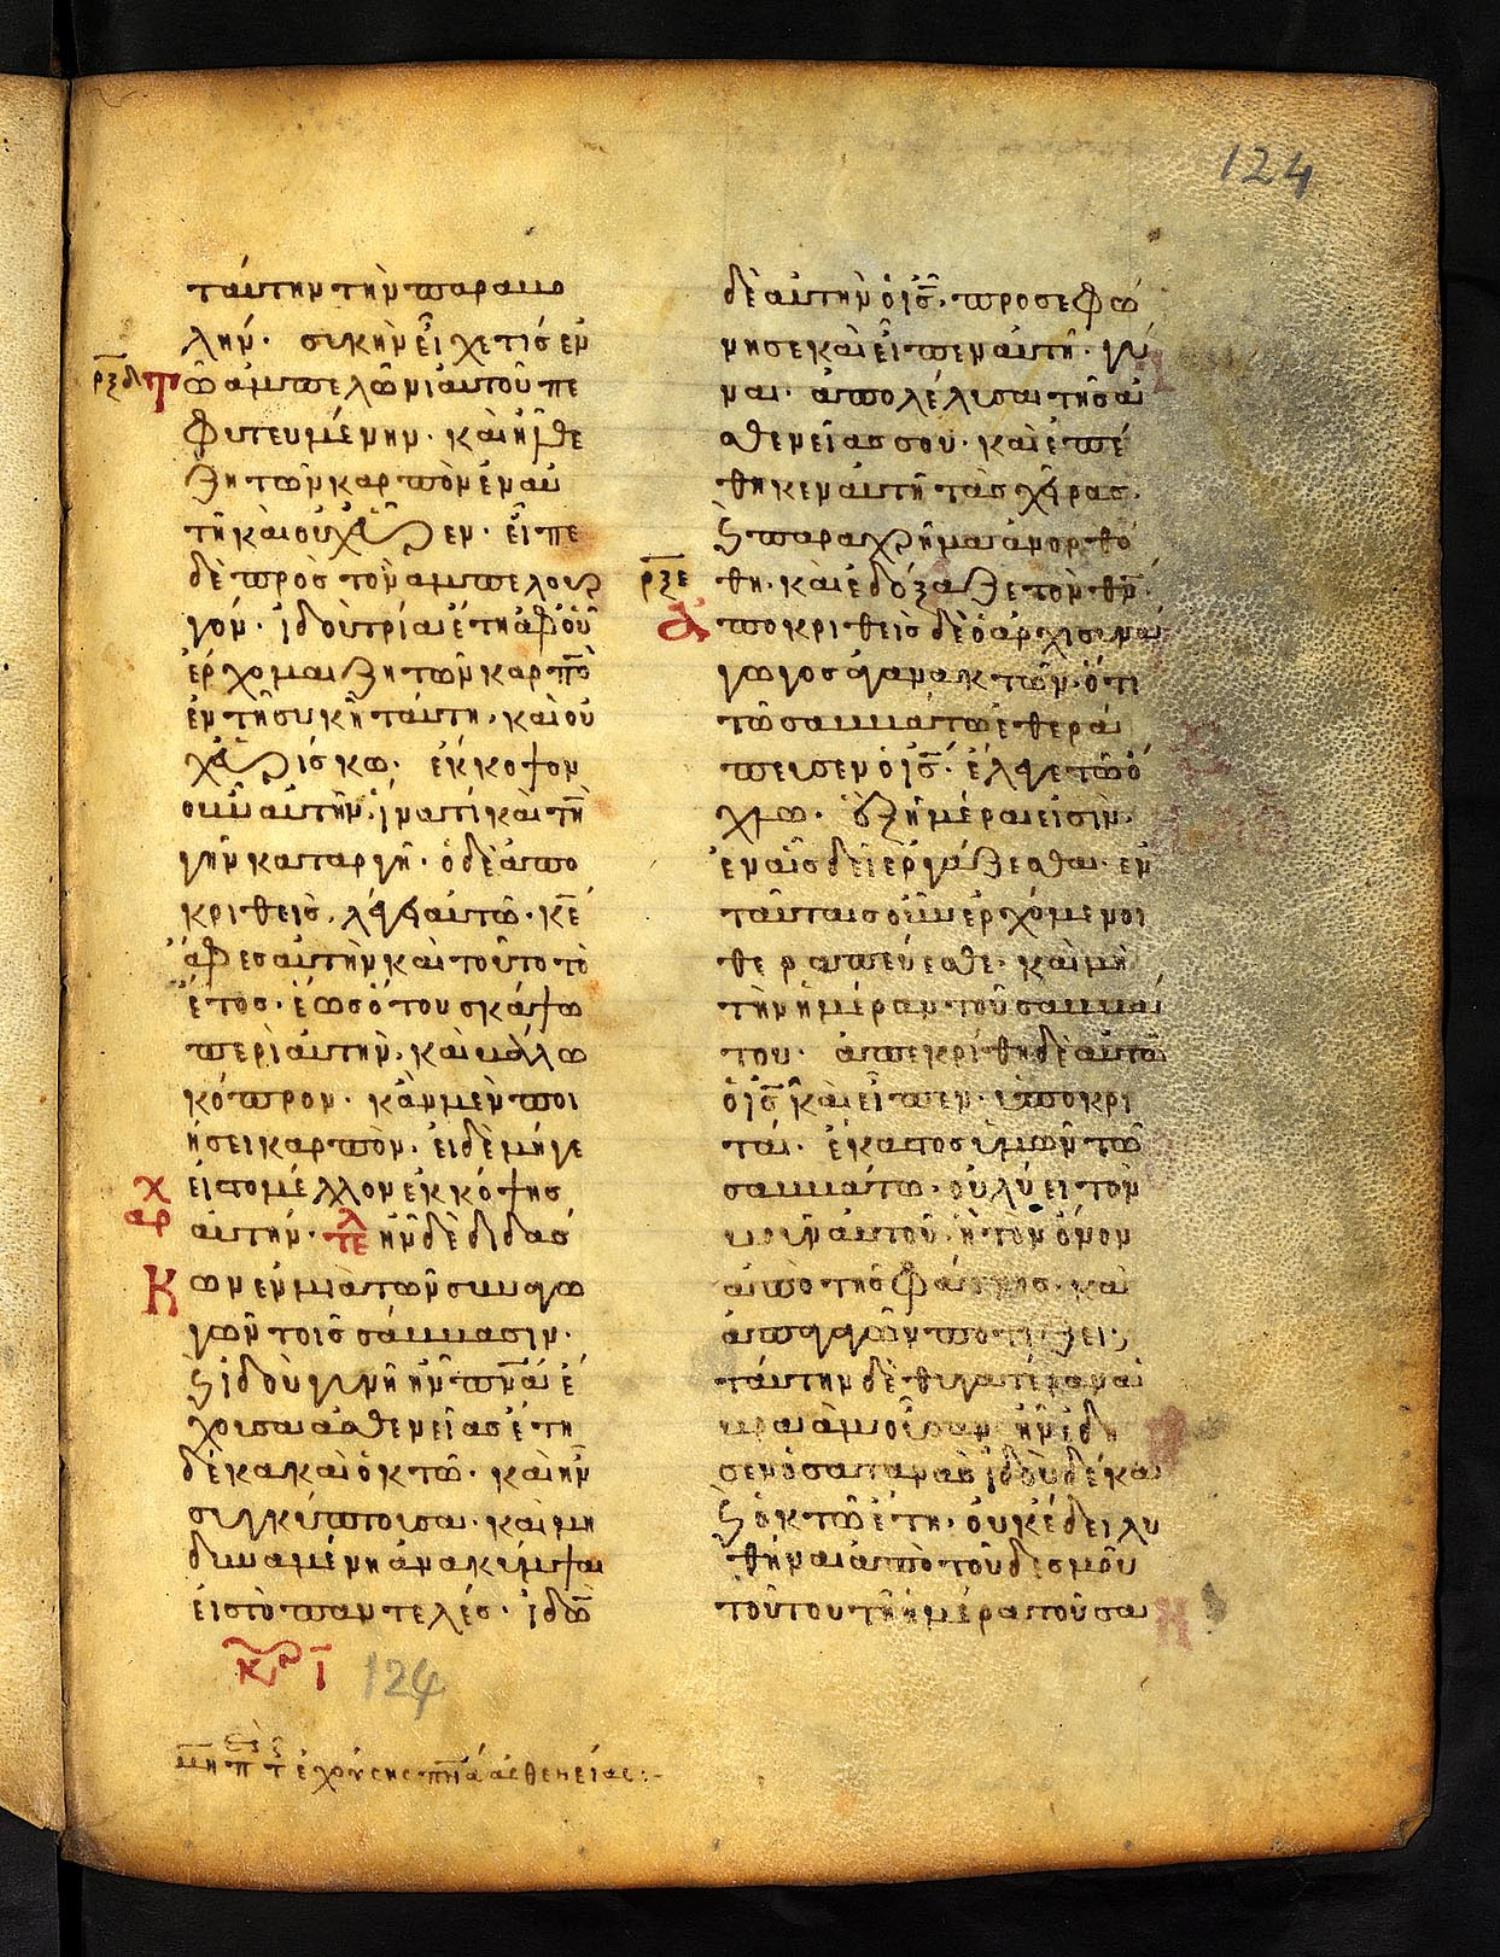 124
ταύτην τὴν παραβο
λήν· συκὴν εἶχε τις ἐν
ρξδ τῶ ἀμπελῶνι αὐτοῦ πε
φυτευμένην· καὶ ἦλθε
ζητῶν καρπὸν ἐν αὐ
τῆ καὶ οὐχ εὗρεν· εἶπε
δὲ πρὸς τὸν ἀμπελουρ
γόν· ἰδοὺ τρία ἔτη ἀφ' οὗ
ἔρχομαι ζητῶν καρπὸ
ἐν τῆ συκῆ ταύτη, καὶ οὐ
χ εὑρίσκω· ἔκκοψον
οὖν αὐτὴν, ἱνατί καὶ τὴ
γῆν καταργῆ· ὁ δὲ ἀπο
κριθεὶς, λέγει αὐτῶ· κε
ἄφες αὐτὴν καὶ τοῦτο τὸ
ἔτος· ἕως ὅτου σκάψω
περὶ αὐτὴν, καὶ βάλω
κόπρον· κἂν μὲν ποι
ήσει καρπὸν· εἰ δὲ μήγε
εἰς τὸ μέλλον ἐκκόψης
χ
αρ
αὐτήν· τελ ἦν δὲ διδάσ
Κων ἐν μιᾶ τῶν συναγω
γῶν τοῖς σάββασιν·
ϗ ἰδοὺ γυνὴ ἦν πνα ἔ
χουσα ἀσθενείας ἔτη
δέκα καὶ ὀκτῶ· καὶ ἦν
συγκύπτουσα· καὶ μὴ
δυναμένη ἀνακύψαι
εἰς τὸ παντελές· ἰδὼ
κυρ ι 124
ἔχούσης πνα ἀσθενείας:-
δὲ αὐτὴν ὁ ις, προσεφώ
νησε καὶ εἶπεν αὐτῆ· γύ
ναι· ἀπολέλυσαι τῆς ἀ
σθενείας σου· καὶ ἐπέ
θηκεν αὐτῆ τὰς χεῖρας·
ϗ παραχρῆμα ἀνορθό
ρξε θη· καὶ ἐδόξαζε τὸν θν·
Ἀποκριθεὶς δὲ ὁ ἀρχισυνα
γωγος ἀγανακτῶν· ὅτι
τῶ σαββάτω ἐθερά
πευσεν ὁ ις· ἔλεγε τῶ ὄ
χλω· ἓξ ἡμέραι εἰσὶν·
ἐν αἷς δεῖ ἐργάζεσθαι· ἐν
ταύταις οὖν ἐρχόμενοι
θεραπεύεσθε· καὶ μὴ
τὴν ἡμέραν τοῦ σαββά
του· ἀπεκρίθη δὲ αὐτῶ
ὁ ις καὶ εἶπεν· ὑποκρι
ταί· ἕκαστος ὑμῶν τῶ
σαββάτω· οὐ λύει τὸν
βοῦν αὐτοῦ· ἢ τὸν ὄνον
ἀπὸ τῆς φάτνης· καὶ
ἀπαγαγὼν ποτίζει;
ταύτην δὲ θυγατέρα ἀ
βραὰμ οὖσαν ἣν ἔδη
σεν ὁ σατανᾶς ἰδοὺ δέκα
ϗ ὀκτῶ ἔτη· οὐκ ἔδει λυ
θῆναι ἀπὸ τοῦ δεσμοῦ
τούτου τῆ ἡμέρα τοῦ σα